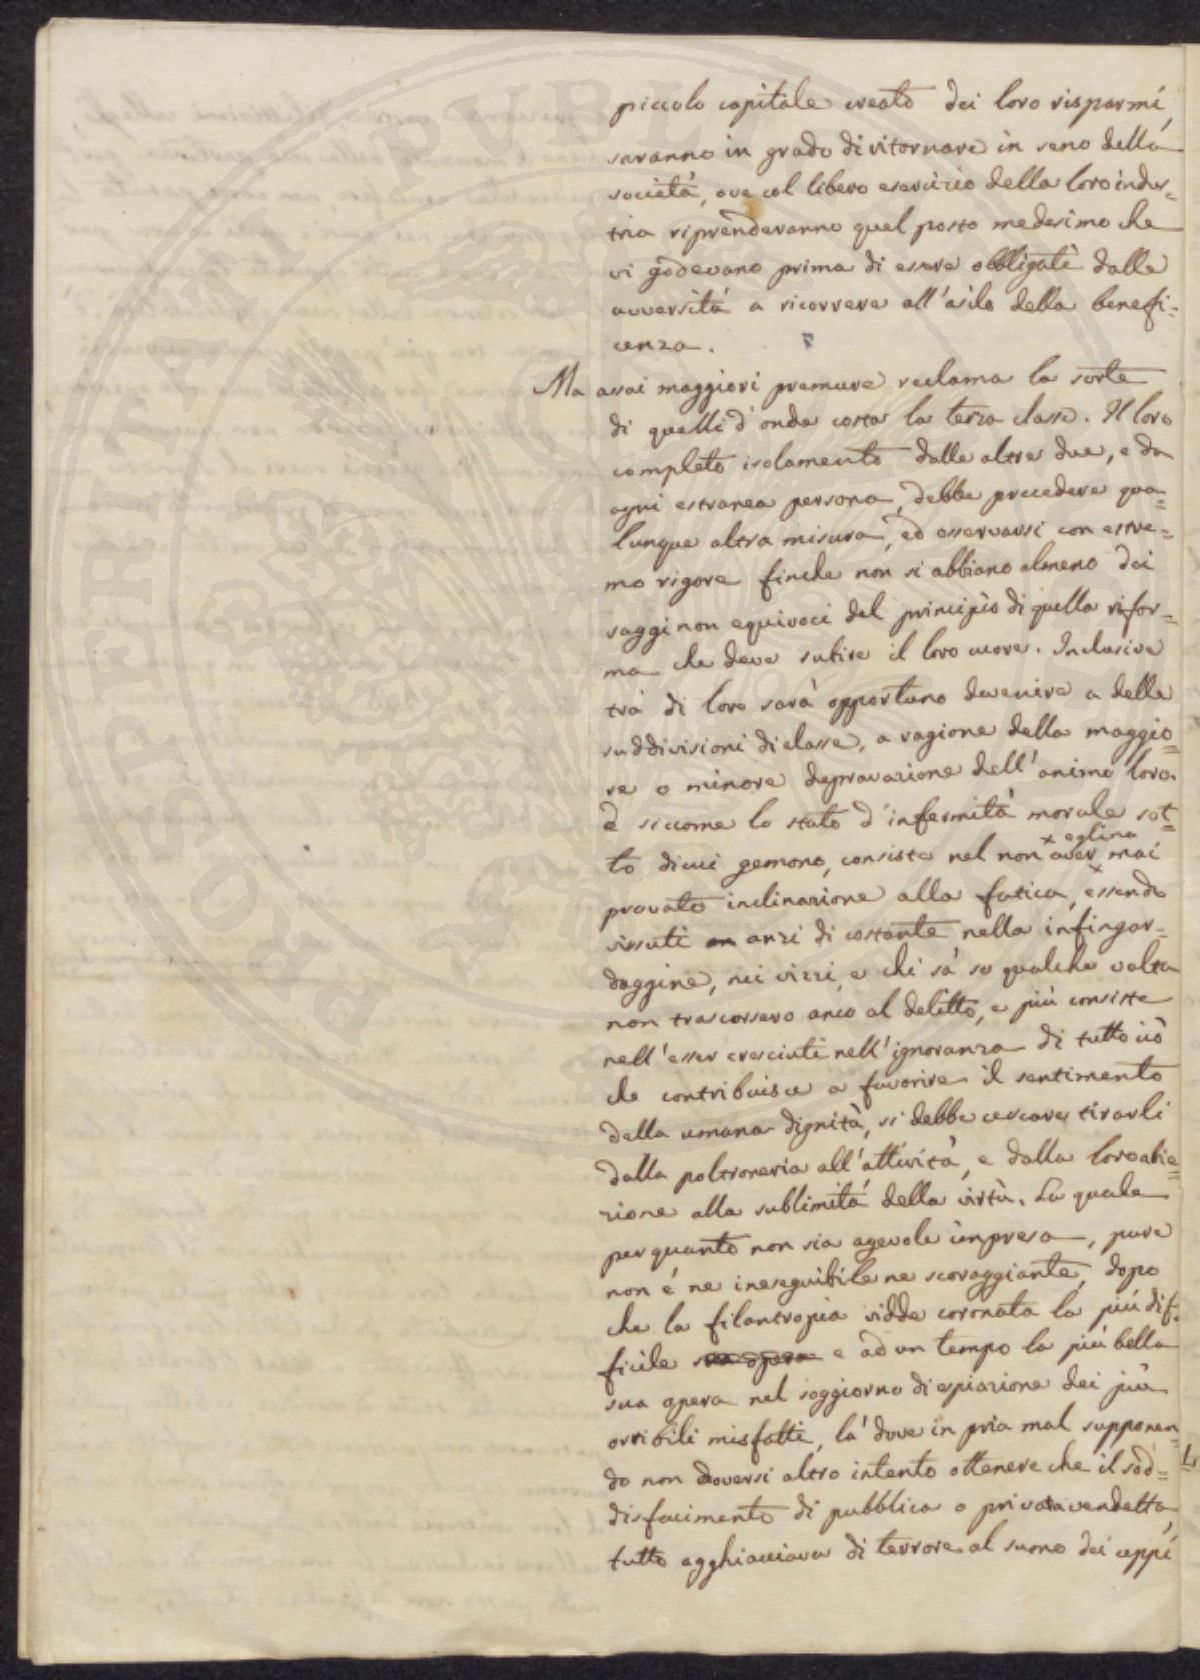 piccolo capitale creato dei loro risparmi,
saranno in grado di ritornare in seno della
società, ove col libero esercizio della loro indus=
tria riprenderanno quel posto medesimo che
vi godevano prima di essere obbligati dalle
avversità a ricorrere all'asilo della benefi=
cenza.
Ma assai maggiori premure reclama la sorte
di quelli d'onde costa la terza classe. Il loro
completo isolamento dalle altre due, e da
ogni estranea persona, debbe precedere qua=
lunque altra misura, ed osservarsi con estre=
mo rigore finche non si abbiano almeno dei
saggi non equivoci del principio di quella rifor=
ma che deve subire il loro cuore. Inclusive
trà di loro sarà opportuno devenire a delle
suddivisioni di classe, a ragione della maggio=
re o minore depravazione dell'animo loro.
E siccome lo stato d'infermità morale sot=
to di cui gemono, consiste nel non aver × eglino mai
provato inclinazione alla fatica, essendo
vissuti an anzi di costante nella infingar=
daggine, nei vizzi, e chi sà se qualche volta
non trascorsero anco al delitto, e più consiste
nell'esser cresciuti nell'ignoranza di tutto ciò
che contribuisce a favorire il sentimento
della umana dignità, si debbe cercare tirarli
dalla poltroneria all'attività, e dalla loro abie=
zione alla sublimità della virtù. La quale
per quanto non sia agevole impresa, pure
non é ne ineseguibile ne scoraggiante, dopo
che la filantropia vidde coronata la più dif=
ficile sua opera e ad un tempo la più bella
sua opera nel soggiorno di espiazione dei più
orribili misfatti, la' dove in pria mal supponen=
do non doversi altro intento ottenere che il sod=
disfacimento di pubblica o privata vendetta,
tutto agghiacciava di terrore al suono dei ceppi
PROSPERITATI PUBLI